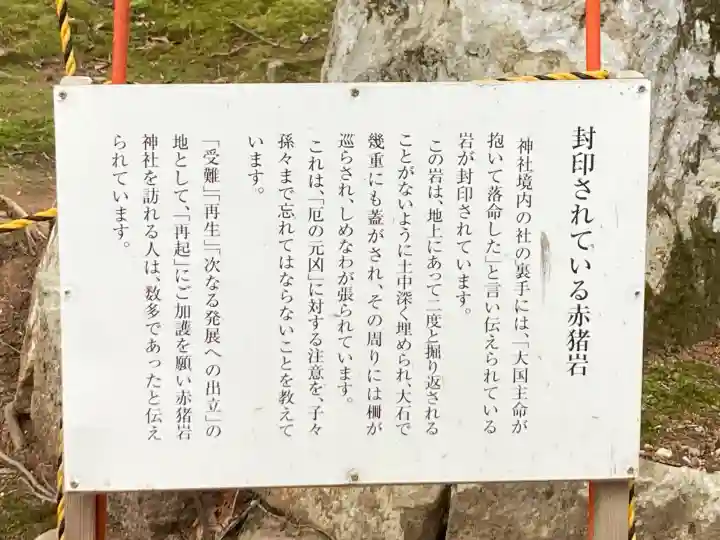 封印されている赤猪岩
神社境内の社の裏手には、「大国主命が
抱いて落命した」と言い伝えられている
岩が封印されています。
この岩は、地上にあって二度と掘り返される
ことがないように土中深く埋められ、大石で
幾重にも蓋がされ、その周りには柵が
巡らされ、しめなわが張られています。
これは、「厄の元凶」に対する注意を、子々
孫々まで忘れてはならないことを教えて
います。
「受難」「再生」「次なる発展への出立」の
地として、「再起」にご加護を願い赤猪岩
神社を訪れる人は、数多であったと伝え
られています。